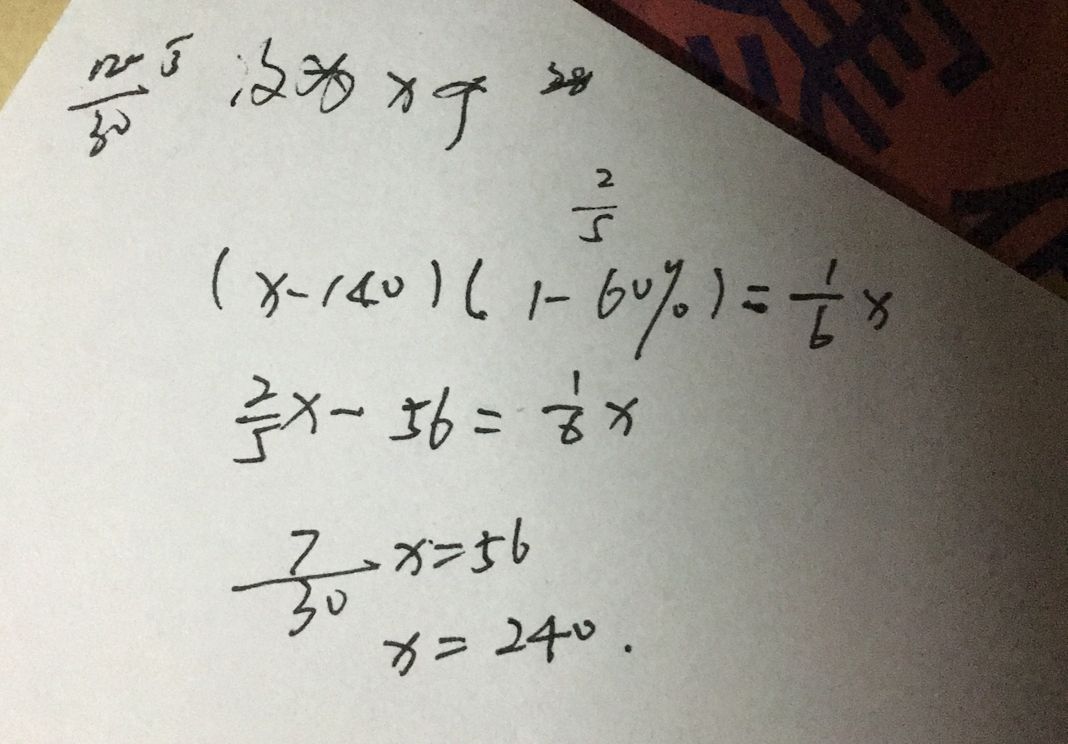 (12-5)/30 设 x 个
2/5
(x-140)(1-60%)=1/6 x
2/5 x-56=1/6 x
7/30 x=56
x=240.